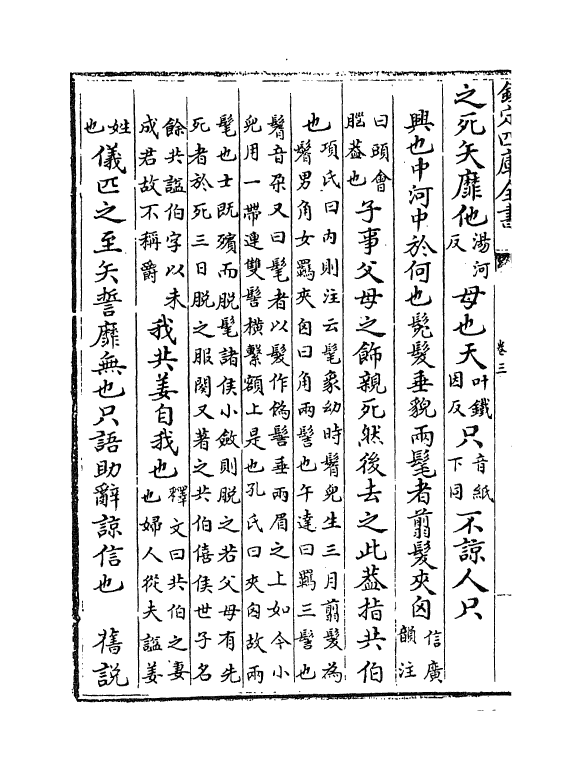 欽定四庫全書
卷三
之死矢靡他湯河反母也天叶鐵因反只音紙下同不諒人只
興也中河中於何也髧髮垂貌兩髦者翦髮夾囟信廣韻注
曰頭會腦蓋也子事父母之飾親死然後去之此蓋指共伯
也項氏曰内則注云髦象幼時鬌兒生三月翦髮為
鬌男角女羈夾囟曰角兩髻也午達曰羈三髻也
鬌音朶又曰髦者以髮作偽髻垂兩眉之上如今小
兒用一帶連雙髻橫繫額上是也孔氏曰夾囟故兩
髦也士既殯而脱髦諸侯小斂則脱之若父母有先
死者於死三日脱之服闋又著之共伯僖侯世子名
餘共諡伯字以未成君故不稱爵我共姜自我也釋文曰共伯之妻也婦人從夫諡姜
姓也儀匹之至矢誓靡無也只語助辭諒信也　舊説